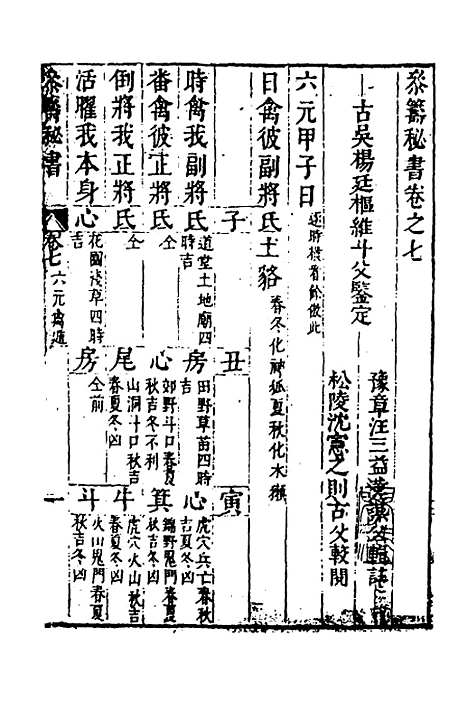 參籌秘書卷之七
豫章汪三益
古吳楊廷樞維斗父鑒定
松陵沈憲之則古父較閱
六元甲子日
逐時橫看餘倣此
日禽彼副將氐土貉
春冬化神狐夏秋化水獺
子 丑 寅
時禽我副將氐 道堂土地廟四時吉 房 田野草苗四時吉 心 虎穴兵亡春秋吉夏冬凶
畨禽彼正將氐 仝 心 郊野斗口春夏秋吉冬不利 箕 鬼門春夏秋吉冬凶
倒將我正將氐 仝 尾 山洞斗口秋吉春夏冬凶 牛 虎穴火山秋吉春夏冬凶
活曜我本身心 花園淺草四時吉 房 仝前 斗 火山鬼門春夏秋吉冬凶
參籌秘書
卷七
六元禽遁
一